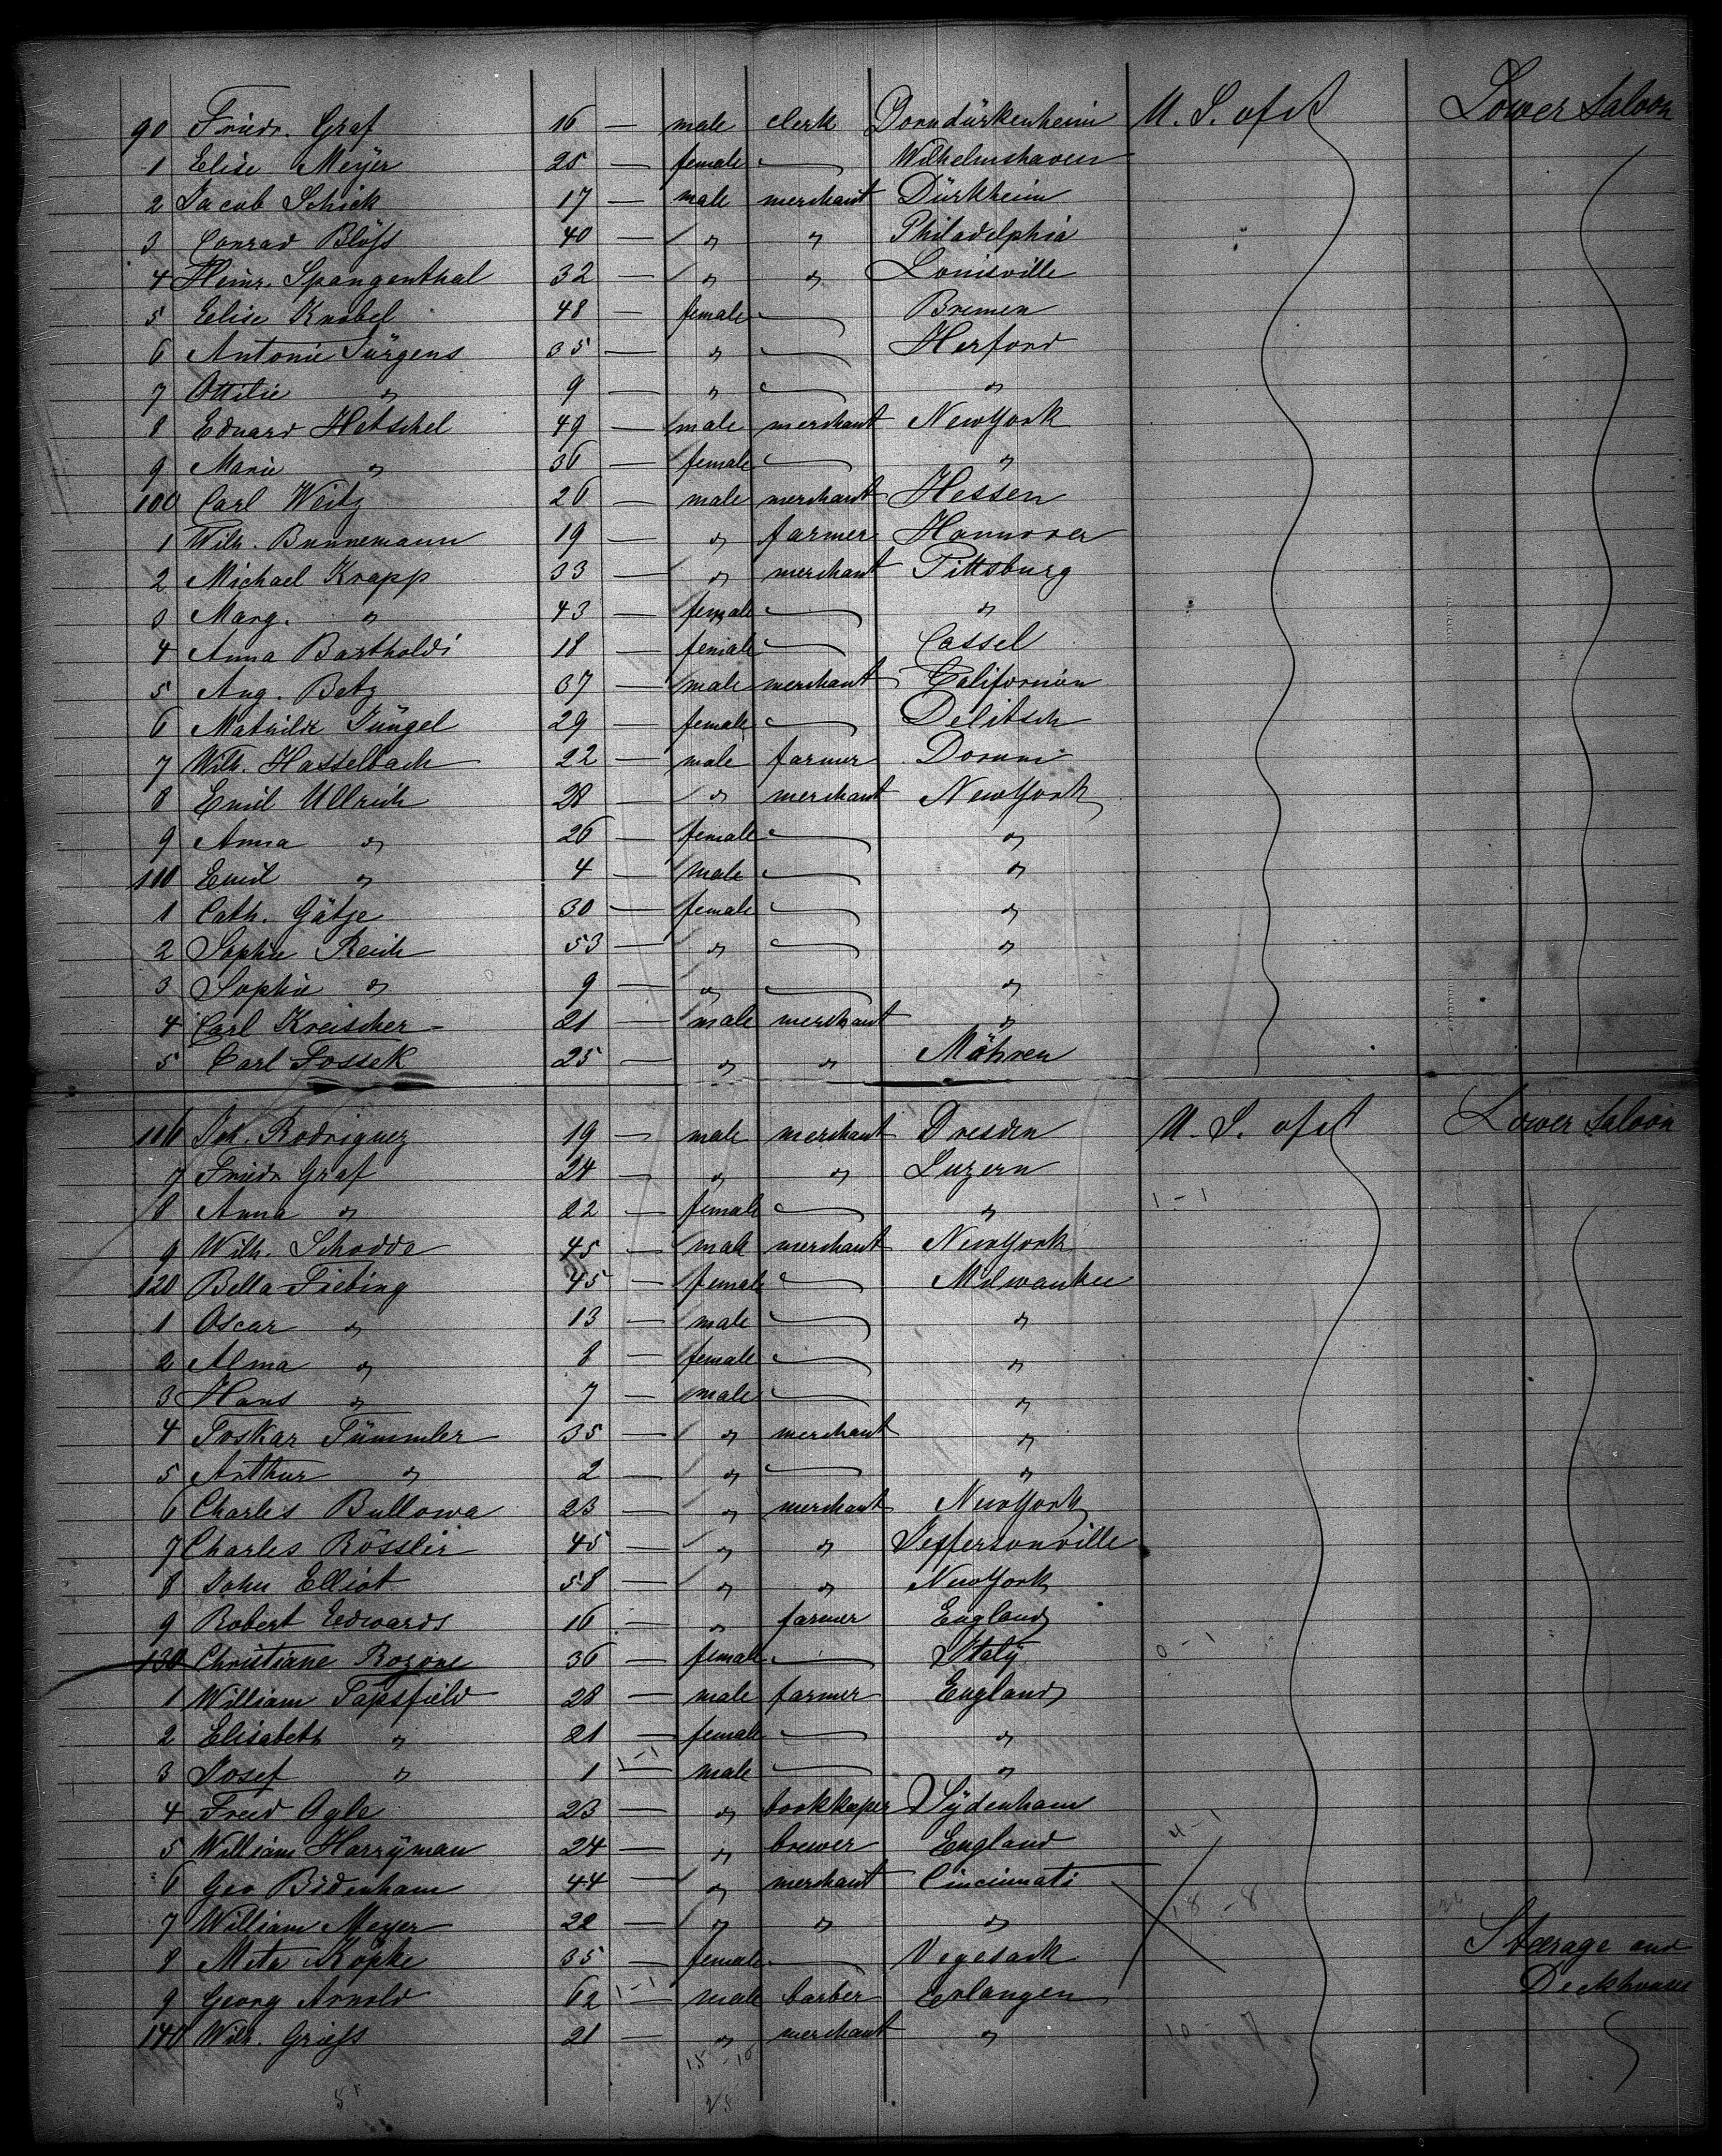 90 Friedr. Graf 16 — male clerk Dorndürkenheim U. S. of A Lower Saloon
1 Elise Meyer 25 — female — Wilhelmshaven
2 Jacob Schick 17 — male merchant Dürkheim
3 Conrad Blöss 40 — " " Philadelphia
4 Heinr. Spangenthal 32 — " " Louisville
5 Elise Knobel 48 — female — Bremen
6 Antonie Jürgens 35 — " — Herford
7 Ottilie " 9 — " — "
8 Eduard Hetschel 49 — male merchant New York
9 Marie " 36 — female — "
100 Carl Weitz 26 — male merchant Hessen
1 Wilh. Bunnemann 19 — " farmer Hannover
2 Michael Krapp 33 — " merchant Pittsburg
3 Marg. " 43 — female — "
4 Anna Bartholdi 18 — female — Cassel
5 Aug. Betz 37 — male merchant Californien
6 Mathilde Jüngel 29 — female — Delitsch
7 Wilh. Hasselbach 22 — male farmer Dorum
8 Emil Ullrich 28 — " merchant New York
9 Anna " 26 — female — "
110 Emil " 4 — male — "
1 Cath. Gätje 30 — female — "
2 Sophie Reich 53 — " — "
3 Sophie " 9 — " — "
4 Carl Kreischer 21 — male merchant "
5 Carl Fossek 25 — " " Mähren
116 Joh. Rodriguez 19 — male merchant Dresden U. S. of A Lower Saloon
7 Friedr Graf 24 — " " Luzern
8 Anna " 22 — female — " 1 - 1
9 Wilh. Schodde 45 — male merchant New York
120 Bella Fiebing 45 — female — Milwaukee
1 Oscar " 13 — male — "
2 Alma " 8 — female — "
3 Hans " 7 — male — "
4 Toskar Tümmler 35 — " merchant "
5 Arthur " 2 — " — "
6 Charles Bullowa 23 — " merchant New York
7 Charles Rössler 45 — " " Jeffersonville
8 John Elliot 58 — " " New York
9 Robert Edwards 16 — " farmer England
130 Christiane Rozone 36 — female — Italy 0 - 1
1 William Tapsfield 28 — male farmer England
2 Elisabeth " 21 — female — "
3 Josef " 1 1-1 male — "
4 Fred Ogle 23 — " bookkeeper Sydenham
5 William Harryman 24 — " brewer England 4 - 1
6 Geo Bidenham 44 — " merchant Cincinnati
7 William Meyer 22 — " " " 18 - 8
8 Meta Köpke 35 — female — Vegesack Steerage and
9 Georg Arnold 62 1-1 male barber Erlangen Deckhouses
140 Wilh. Griess 21 — " merchant "
15 - 10